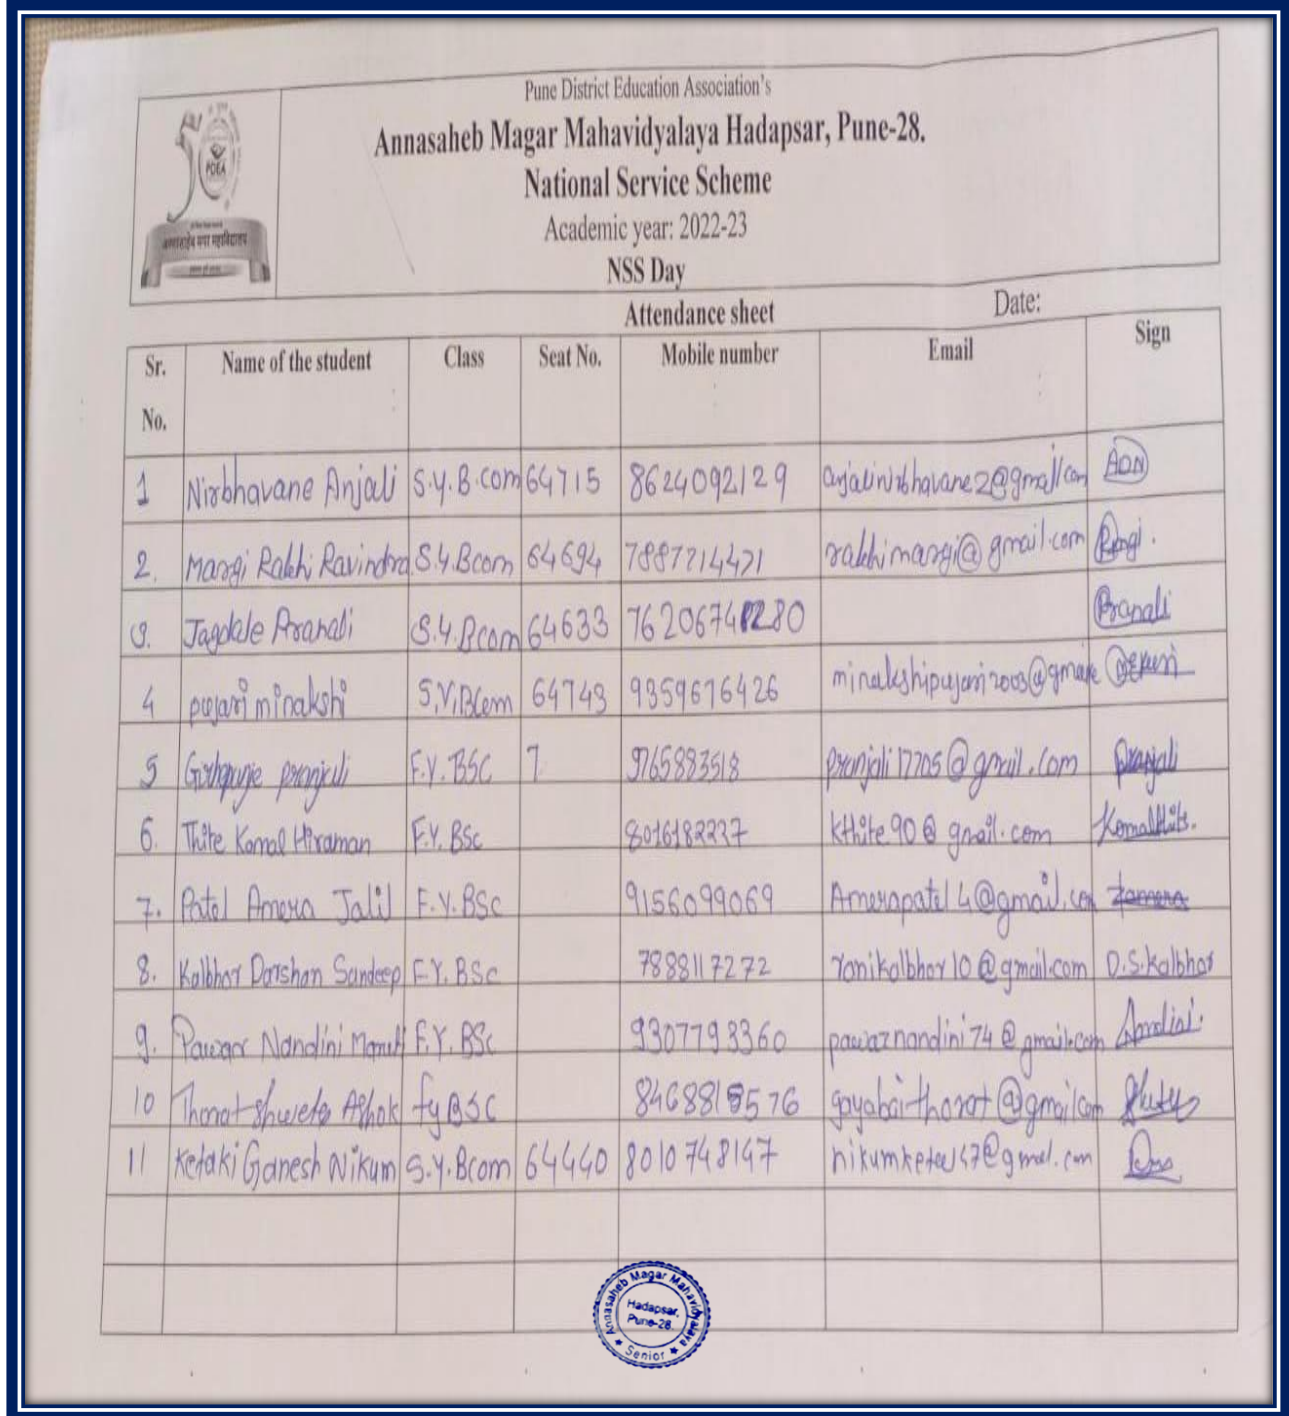 Pune District Education Association's
Annasaheb Magar Mahavidyalaya Hadapsar, Pune-28.
National Service Scheme
Academic year: 2022-23
NSS Day
PDEA
अण्णासाहेब मगर महाविद्यालय
Attendance sheet Date:
Sr. No. Name of the student Class Seat No. Mobile number Email Sign
1 Nirbhavane Anjali S.Y.B.com 64715 8624092129 anjalinirbhavane2@gmail.com
2. Margi Rakhi Ravindra S.Y.Bcom 64694 7887714471 rakhimargi@gmail.com
3. Jagdale Pranali S.Y.Bcom 64633 Pranali
4 pujari minakshi S.Y.Bcom 64743 9359676426
5 pranjali F.Y.BSC 7 9765883518 pranjali17705@gmail.com pranjali
6. Thite Komal Hiraman F.Y. BSc 8016182237 kthite90@gmail.com Komalthite.
7. Patel Amera Jalil F.Y.BSc 9156099069 Amerapatel4@gmail.com
8. Kalbhor Darshan Sandeep F.Y. BSc 7888117272 ranikalbhor10@gmail.com D.S.Kalbhor
9. Pawar Nandini Maruti F.Y. BSc 9307793360 pawarnandini74@gmail.com
10 Thorat Shweta Ashok fyBSC gayabaithorat@gmail.com
11 Ketaki Ganesh Nikum S.Y.Bcom 64440 8010748147
Annasaheb Magar Mahavidyalaya
Hadapsar,
Pune-28.
★ Senior ★